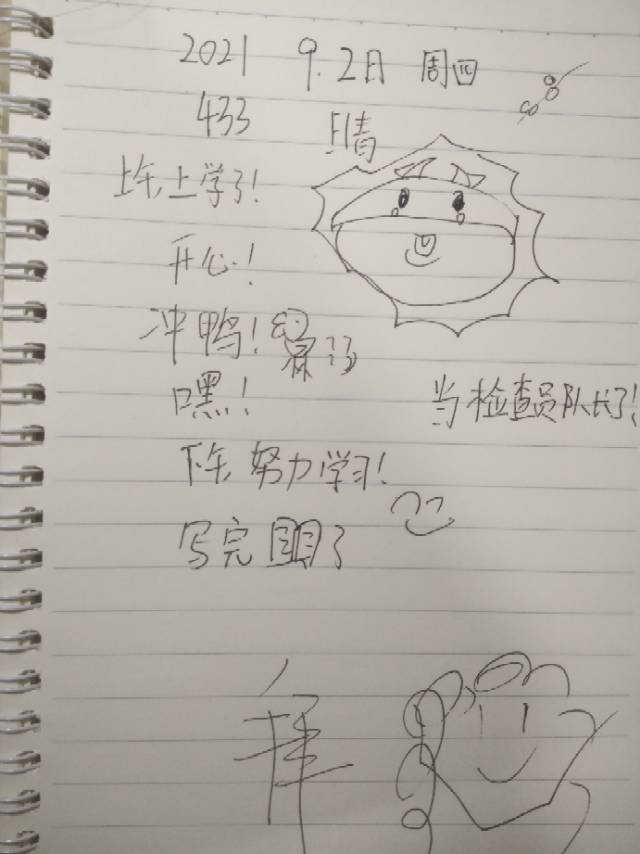 2021 9.2日 周四
433 晴
上午上学了!
开心!
冲鸭!
嘿!
当检查员队长了!
下午努力学习!
写完了